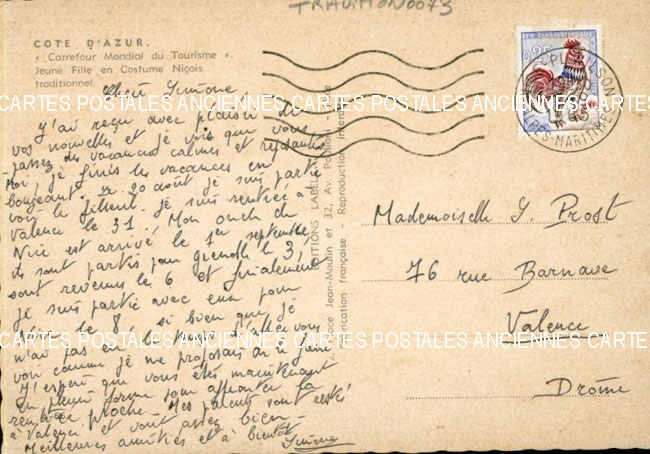 TRADITION0073
COTE D'AZUR.
« Carrefour Mondial du Tourisme »
Jeune Fille en Costume Niçois
traditionnel.
Chère Simone,
J'ai reçu avec plaisir de
vos nouvelles et je vois que vous
passez des vacances calmes et reposantes
Moi, je finis les vacances en
bougeant. Le 20 août je suis partie
voir le je suis rentrée à
Valence le 31. Mon oncle de
Nice est arrivé le 1er septembre
ils sont partis pour grenoble le 3,
sont revenus le 6 et finalement
je suis partie avec eux pour
Nice le 8, si bien que je
n'ai pas eu le temps d'aller vous
voir comme je me proposais de le faire
J'espère que vous êtes maintenant
en pleine forme pour affronter la
rentrée proche. Mes parents sont restés
à Valence et vont assez bien.
Meilleures amitiés et à bientôt
Simone
EDITIONS LABEL
Place Jean-Moulin et 32, Av.
Fabrication française - Reproduction interdite
0,25
REPUBLIQUE
ALPES-MARITIMES
Mademoiselle Y. Prost
76 rue Barnave
Valence
Drôme
CARTES POSTALES ANCIENNES CARTES POSTALES ANCIENNES CARTES
CARTES POSTALES ANCIENNES CARTES POSTALES ANCIENNES CARTES